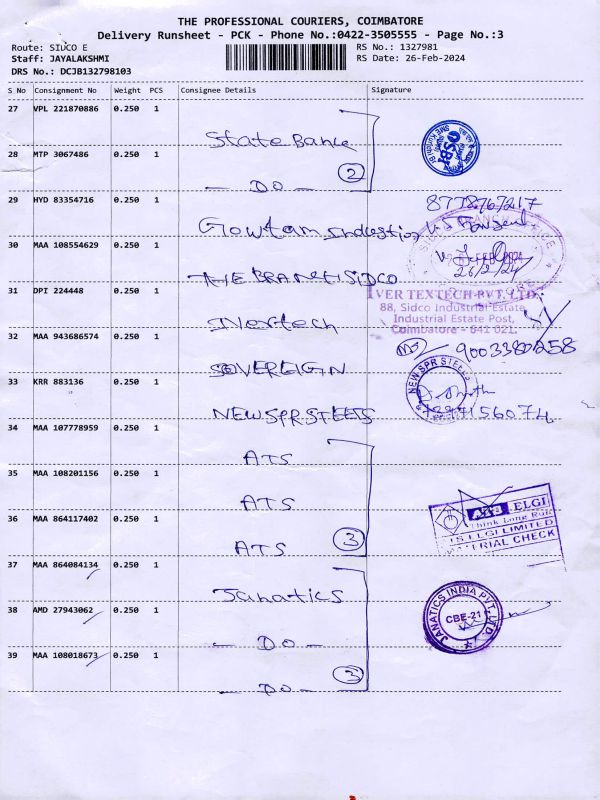 THE PROFESSIONAL COURIERS, COIMBATORE
Delivery Runsheet - PCK - Phone No.:0422-3505555 - Page No.:3
Route: SIDCO E
RS No.: 1327981
Staff: JAYALAKSHMI
RS Date: 26-Feb-2024
DRS No.: DCJB132798103
S No Consignment No Weight PCS Consignee Details Signature
27 VPL 221870886 0.250 1
State Bank
28 MTP 3067486 0.250 1
2
— DO —
29 HYD 83354716 0.250 1
8778767217
Gowtam Industries
30 MAA 108554629 0.250 1
26/2/24
THE BRANCH SIDCO
31 DPI 224448 0.250 1
IVER TEXTECH PVT. LTD.
88, Sidco Industrial Estate
Industrial Estate Post,
Coimbatore - 641 021.
Ivertech
32 MAA 943686574 0.250 1
9003380258
SOVEREIGN
33 KRR 883136 0.250 1
NEW SPR STEELS
NEW SPR STEELS
34 MAA 107778959 0.250 1
ATS
35 MAA 108201156 0.250 1
ATS
36 MAA 864117402 0.250 1
ATS
3
ATS ELGI
Think Long Run
ATS ELGI LIMITED
MATERIAL CHECK
37 MAA 864084134 0.250 1
Janatics
38 AMD 27943062 0.250 1
JANATICS INDIA PVT. LTD.
CBE-21
— DO —
39 MAA 108018673 0.250 1
3
— DO —